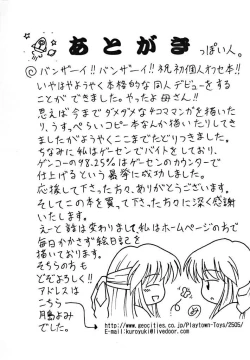 あとがき
っぽい人。
◎バンザーイ!!バンザーイ!!祝初個人オフセ本!!
いやはやようやく本格的な同人デビューをする
ことができました。やったよ母さん!!
思えば今までダメダメな4コママンガを描いた
り、うすっぺらいコピー本なんか描いたりしてき
ましたがようやくここまでたどりつきました。
ちなみに私はゲーセンでバイトをしており、
ゲンコーの98.25%はゲーセンのカウンターで
仕上げるという暴挙に成功しました。
応援して下さった方々、ありがとうございます。
そしてこの本を買って下さった方々に深く感謝
いたします。
えーと話は変わりまして、私はホームページの方で
毎日かかさず絵日記を
描いております。
そちらの方も
どぞよろしく!!
アドレスは
こちら
月島よみ
でした。
http://www.geocities.co.jp/Playtown-Toys/2505/
E-mail:kuroyuki@livedoor.com